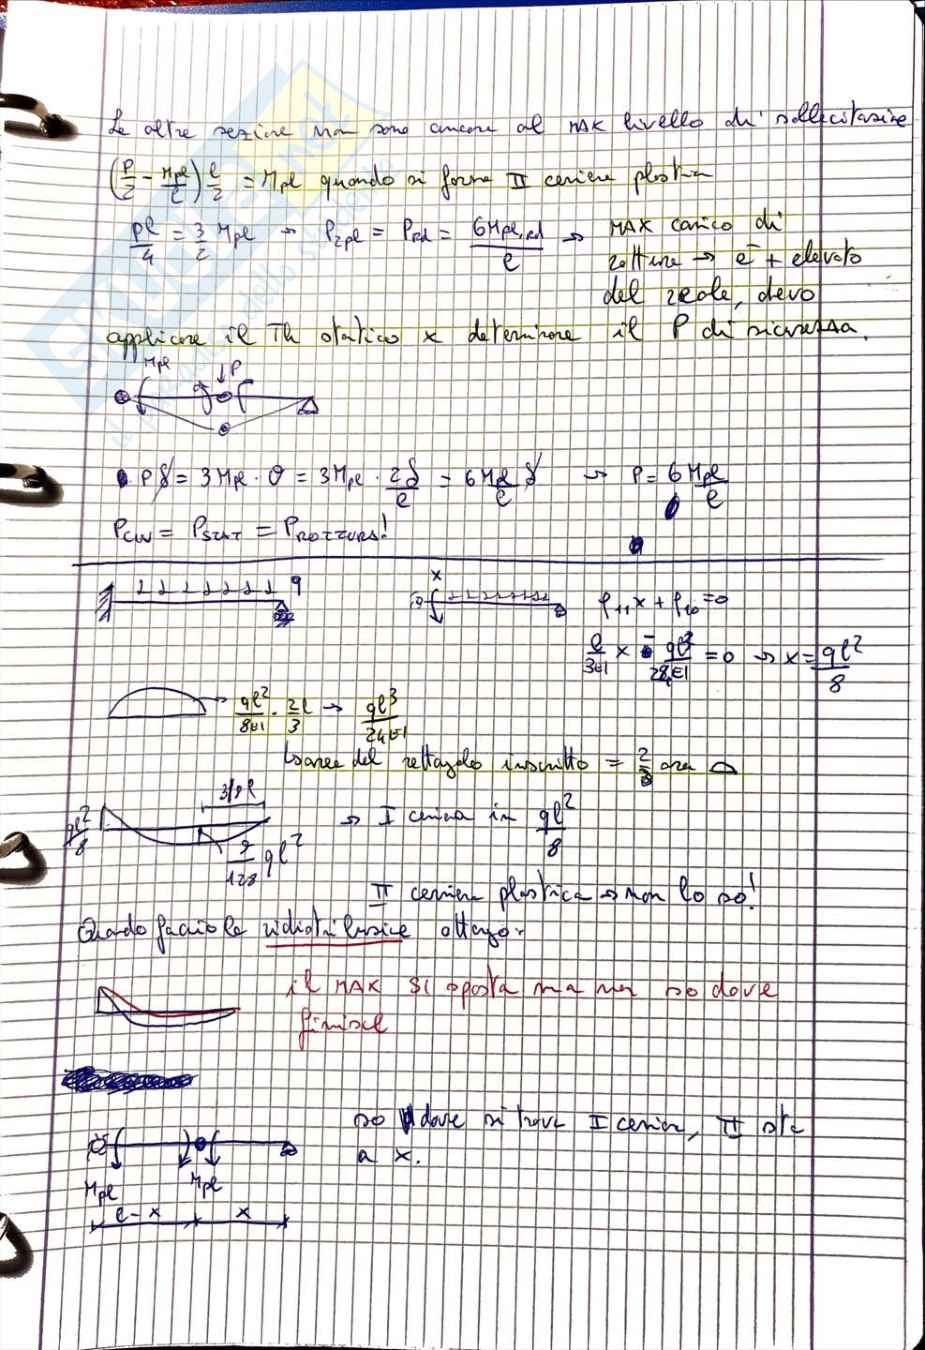 Le altre sezioni non sono ancora al MAX livello di sollecitazione
(P/2 - Mpl/l) l/2 = Mpl quando si forma II cerniera plastica
Pl/4 = 3/2 Mpl → P2pl = PRd = 6Mpl,Rd/l → MAX carico di
rottura → è + elevato
del reale, devo
applicare il Th statico x determinare il P di sicurezza.
Mpl P
Pδ = 3Mpl · θ = 3Mpl · 2δ/l = 6Mpl/l δ → P = 6Mpl/l
PCIN = PSTAT = PROTTURA!
q x φ11x + φ10 = 0
l/3EI x - ql³/24EI = 0 → x = ql²/8
ql²/8EI · 2l/3 → ql³/24EI
area del rettangolo inscritto = 2/3 area
3/8 l
ql²/8 → I cerniera in ql²/8
9/128 ql²
II cerniera plastica → non lo so!
Quando faccio la ridistribuzione ottengo:
il MAX si sposta ma non so dove
finisce
so dove si trova I cerniera, II sta
a x.
Mpl Mpl
l-x x